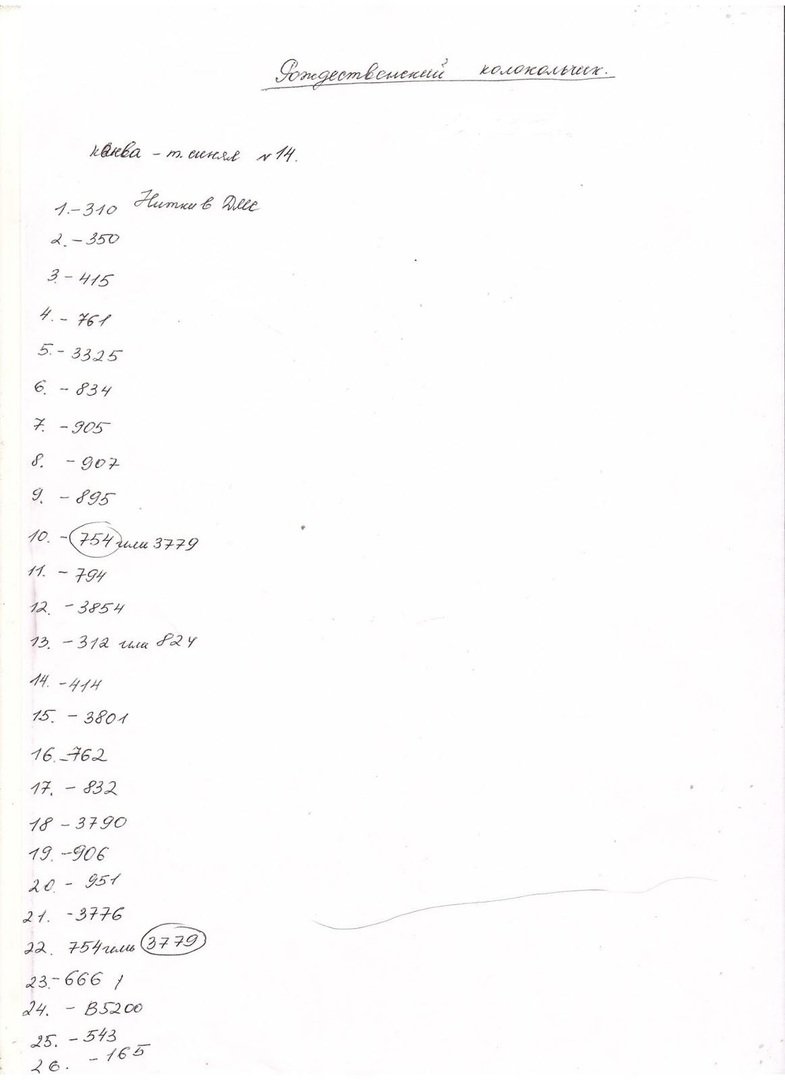 Рождественский колокольчик.
канва - т. синяя № 14.
Нитки в ДМС
1. - 310
2. - 350
3. - 415
4. - 761
5. - 3325
6. - 834
7. - 905
8. - 907
9. - 895
10. - 754 или 3779
11. - 794
12. - 3854
13. - 312 или 824
14. - 414
15. - 3801
16. - 762
17. - 832
18 - 3790
19. - 906
20. - 951
21. - 3776
22. 754 или 3779
23. - 666
24. - B5200
25. - 543
26. - 165